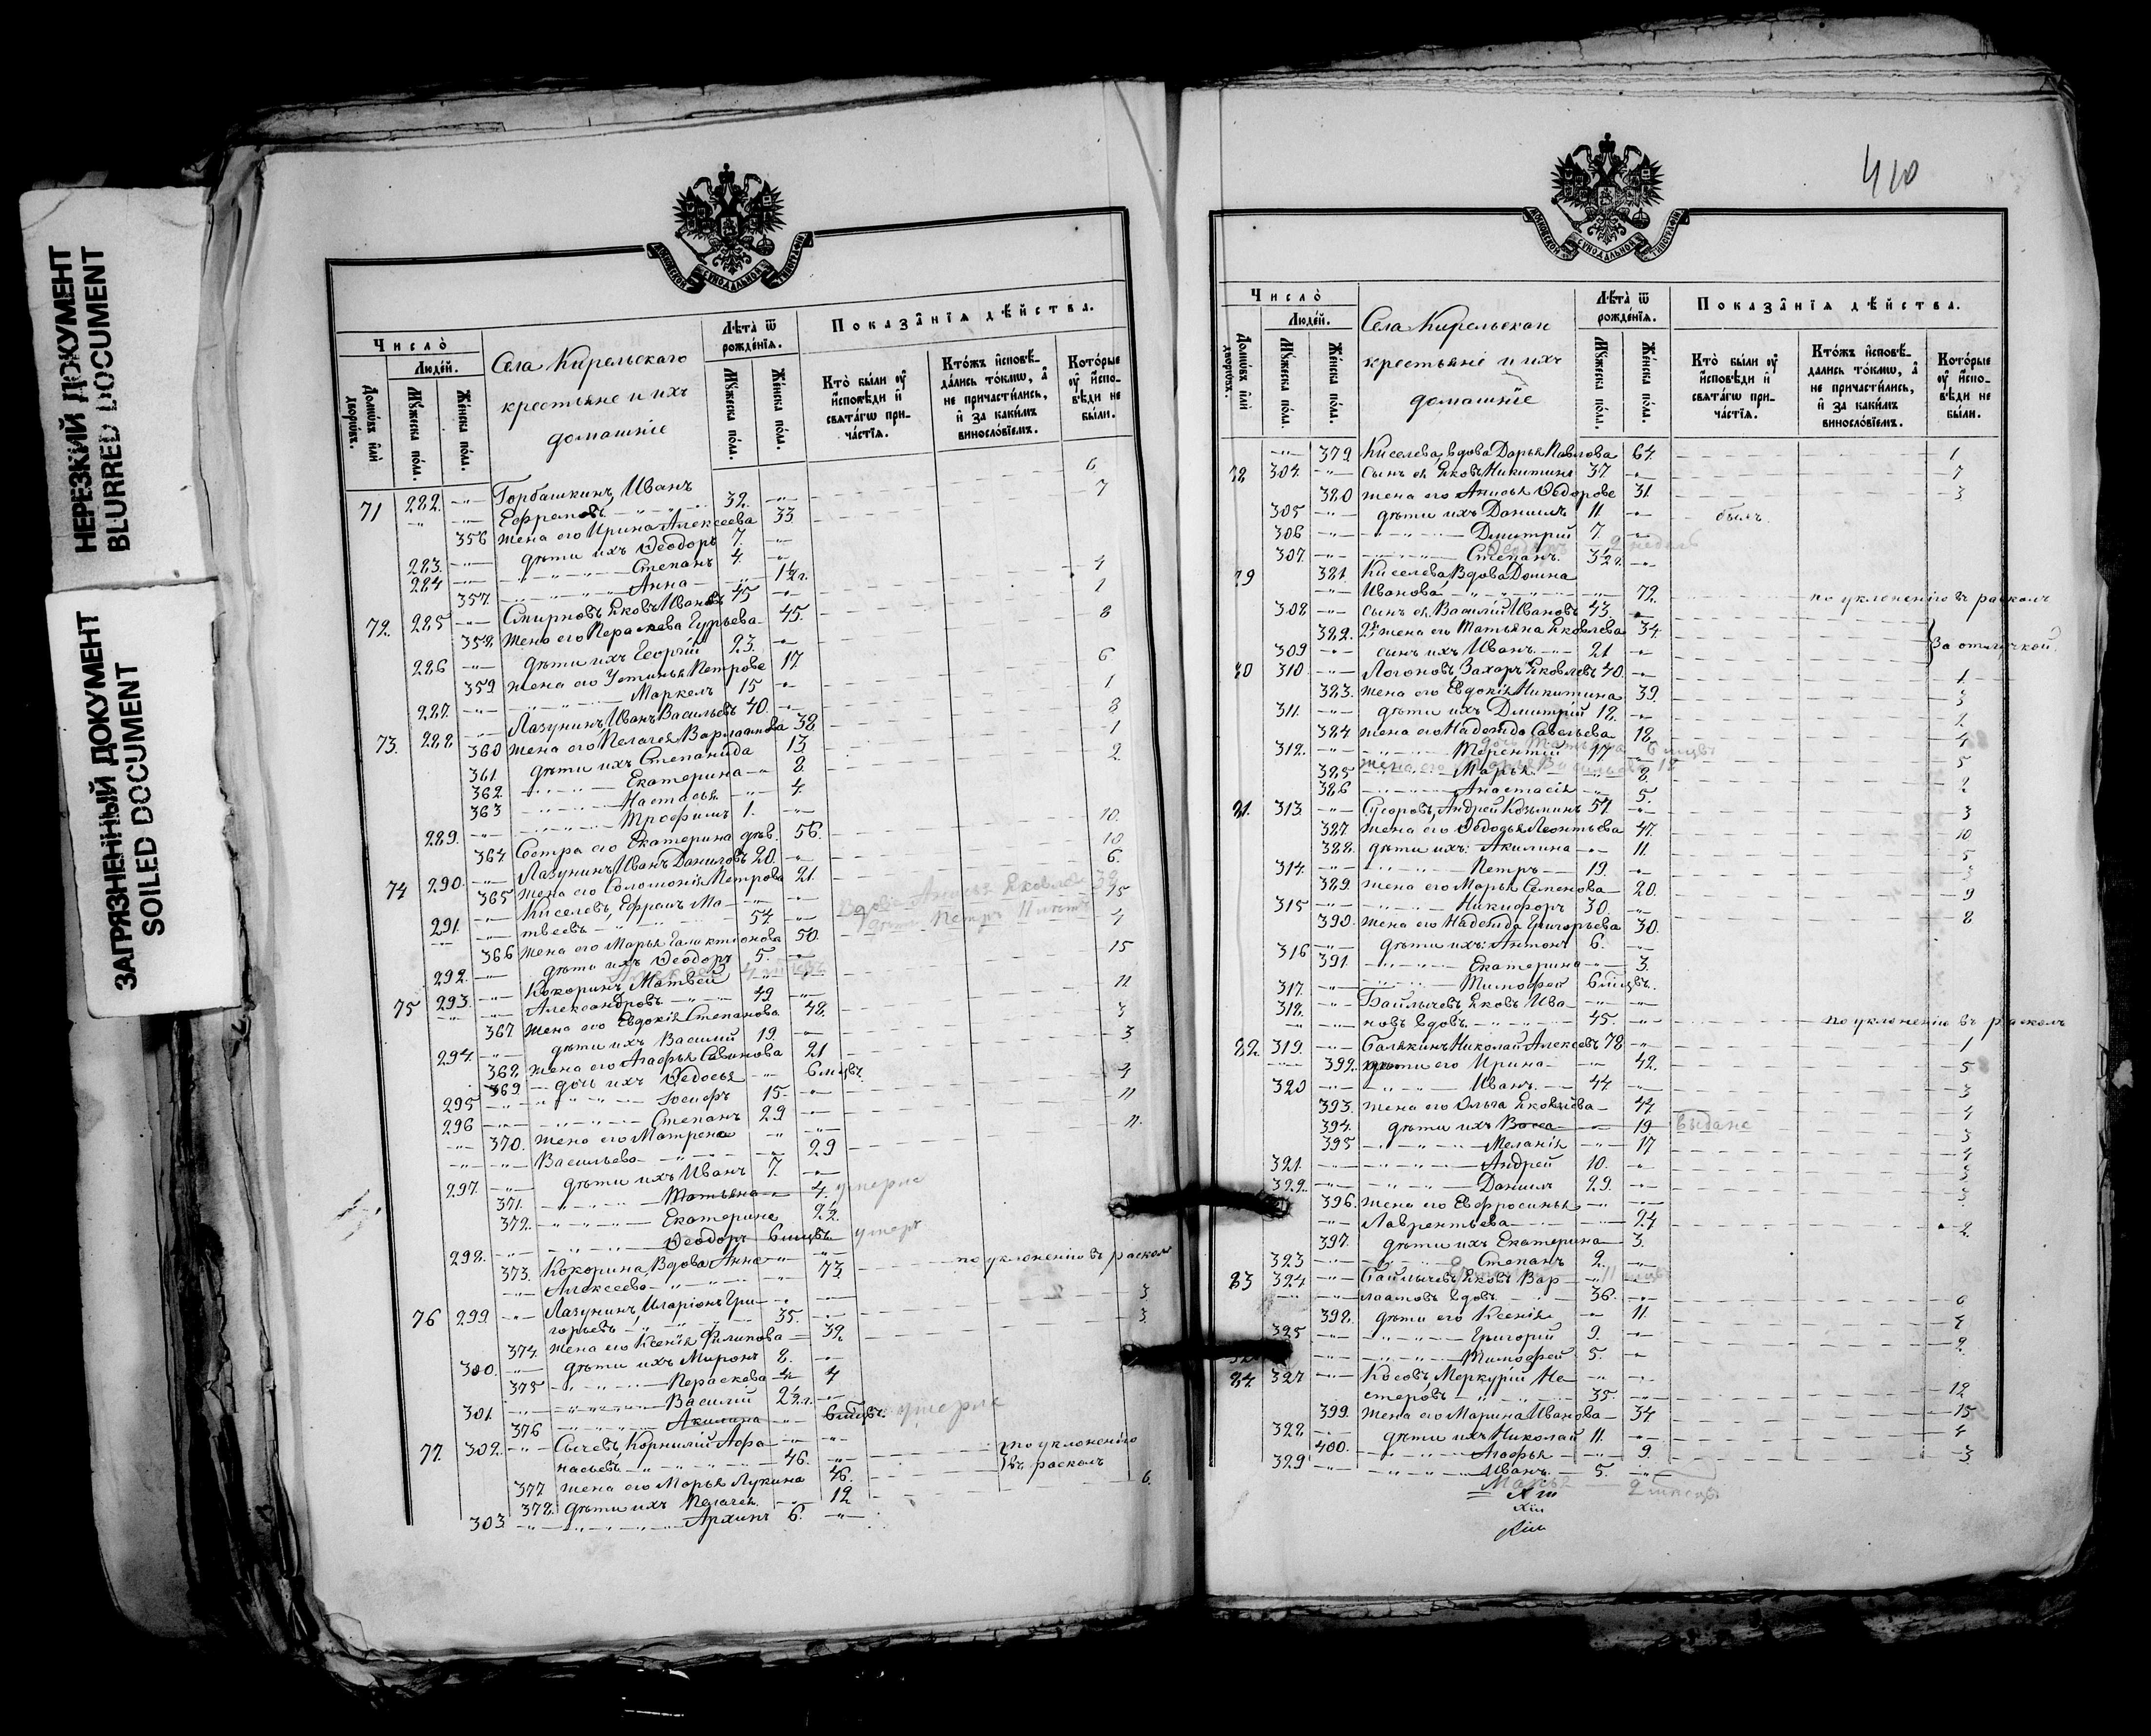 НЕРЕЗКИЙ ДОКУМЕНТ
BLURRED DOCUMENT
ЗАГРЯЗНЕННЫЙ ДОКУМЕНТ
SOILED DOCUMENT
МОСКОВСКОЙ СѴНОДАЛЬНОЙ ТИПОГРАФІИ
Число̀
Людей.
Домѡвъ и҆лѝ дворѡвъ.
Мꙋжеска пола.
Женска пола.
Села Кирельскаго
крестьяне и ихъ
домашніе
Лѣта ѿ рожденїѧ.
Мꙋжеска пола.
Женска пола.
Показанїѧ дѣйства.
Кто̀ были ᲂу҆ и҆сповѣди и҆ свѧтагѡ причастїѧ.
Ктожъ и҆сповѣдались токмѡ, а҆ не причастились, и҆ за какимъ винословїемъ.
Которые ᲂу҆ и҆сповѣди не были.
71 282. Горбашкинъ, Иванъ
Ефремовъ 32. 6
356 жена его Ирина Алексеева 33 7
283. дѣти ихъ Ѳеодоръ 7.
284 Степанъ 4.
357. Анна 1½ г.
72. 285 Смирновъ Яковъ Ивановъ 45 4
358. Жена его Параскева Гурьева 45. 1
286 дѣти ихъ Георгій 23. 8
359 жена его Устинья Петрова 17
287. Маркелъ 15 6
73. 288 Лазунинъ, Иванъ Васильевъ 40. 1
360 жена его Пелагея Варлаамова 38 8
361 дѣти ихъ Степанида 13 1
362. Екатерина 8. 2
363 Настасья 4
289. Трофимъ 1.
364 Сестра его Екатерина дѣв. 56. 10.
74 290. Лазунинъ Иванъ Даниловъ 20. 10
365 жена его Соломонія Петрова 21 6.
291. Киселевъ, Ефремъ Ма-
твеевъ 54. 25
366 жена его Марья Галактіонова 50. 4
292. дѣти ихъ Ѳеодоръ 5.
75 293. Кокоринъ, Матвей
Александровъ 49 15
367. жена его Евдокія Степанова 48. 11
294. дѣти ихъ Василій 19. 3
368. жена его Агафья Савинова 21 3
369 дочь ихъ Ѳедосья 6 мцвъ.
295 Іосифъ 15 4
296 Степанъ 29 11
370. жена его Матрена
Васильева 29 11.
297. дѣти ихъ Иванъ 7.
371. Татьяна 4. умерла
372. Екатерина 2½
298. Ѳеодоръ 6 мцвъ умеръ
373. Кокорина, Вдова Анна
Алексеева 73. по уклоненію въ расколъ
76 299. Лазунинъ, Иларіонъ Гри-
горьевъ 35. 3
374. жена его Ксенія Филипова 39. 3.
300. дѣти ихъ Миронъ 8.
375 Пераскева 4
301. Василій 2½ г.
376 Акилина 6 мцвъ. умерла
77. 302. Сычевъ, Корнилій Афа-
насьевъ 46. по уклоненію
377 жена его Марья Лукина 46. въ расколъ
378. дѣти ихъ Пелагея 12 6.
303. Архипъ 6.
410
МОСКОВСКОЙ СѴНОДАЛЬНОЙ ТИПОГРАФІИ
Число̀
Людей.
Домѡвъ и҆лѝ дворѡвъ.
Мꙋжеска пола.
Женска пола.
Села Кирельскаго
крестьяне и ихъ
домашніе
Лѣта ѿ рожденїѧ.
Мꙋжеска пола.
Женска пола.
Показанїѧ дѣйства.
Кто̀ были ᲂу҆ и҆сповѣди и҆ свѧтагѡ причастїѧ.
Ктожъ и҆сповѣдались токмѡ, а҆ не причастились, и҆ за какимъ винословїемъ.
Которые ᲂу҆ и҆сповѣди не были.
379 Киселева, вдова Дарья Павлова 64. 1
78 304. сынъ ея Яковъ Никитинъ 37. 7
380 жена его Анисья Ѳедорова 31. 3
305 дѣти ихъ Даниилъ 11 былъ.
306 Дмитрій 7.
307. Степанъ 3½ г.
79 381. Киселева, Вдова Домна
Иванова 72. по уклоненію въ расколъ
308 сынъ ея Василій Ивановъ 43.
382. 2я жена его Татьяна Яковлева 34. За отлучкой
309 сынъ ихъ Иванъ 21
80 310 Логоновъ Захаръ Яковлевъ 40. 1
383. жена его Евдокія Никитина 39. 3
311. дѣти ихъ Дмитрій 18. 2
384 жена его Надежда Савельева 18 4
312. Терентій 17 5
385 Марья 8.
386 Анастасія 5.
81. 313. Суворовъ, Андрей Козьминъ 57. 3
387 жена его Ѳедосья Леонтьева 47. 10
388. дѣти ихъ: Акилина 11. 5
314. Петръ 19. 3
389. жена его Марья Семенова 20. 9
315 Никифоръ 30. 8
390. жена его Надежда Григорьева 30.
316 дѣти ихъ: Антонъ 6.
391 Екатерина 3.
317. Тимофей 6 мцвъ.
318. Байлычевъ Яковъ Ива-
новъ вдовъ 45. по уклоненію въ расколъ
82. 319. Балякинъ Николай Алексеевъ 78 1
392. дѣти его Ирина 42. 5
320 Иванъ 44. 3
393. жена его Ольга Яковлева 44. 4
394. дѣти ихъ Васса 19 выдана 3
395 Меланія 17 4
321. Андрей 10. 3
322. Даниилъ 29. 3.
396. жена его Евфросинья
Лаврентьева 24 2.
397. дѣти ихъ Екатерина 3.
323 Степанъ 2.
83 324 Байлычевъ Яковъ Вар-
лаамовъ вдовъ 36. 6
398. дѣти его Ксенія 11.
325 Григорій 9. 2.
Тимофей 5.
84. 327 Косовъ, Меркурій Не-
стеровъ 35. 12
399. жена его Марина Иванова 34 15
328. дѣти ихъ Николай 11. 4
400. Агафья 9. 3
329 Иванъ 5.
Марья